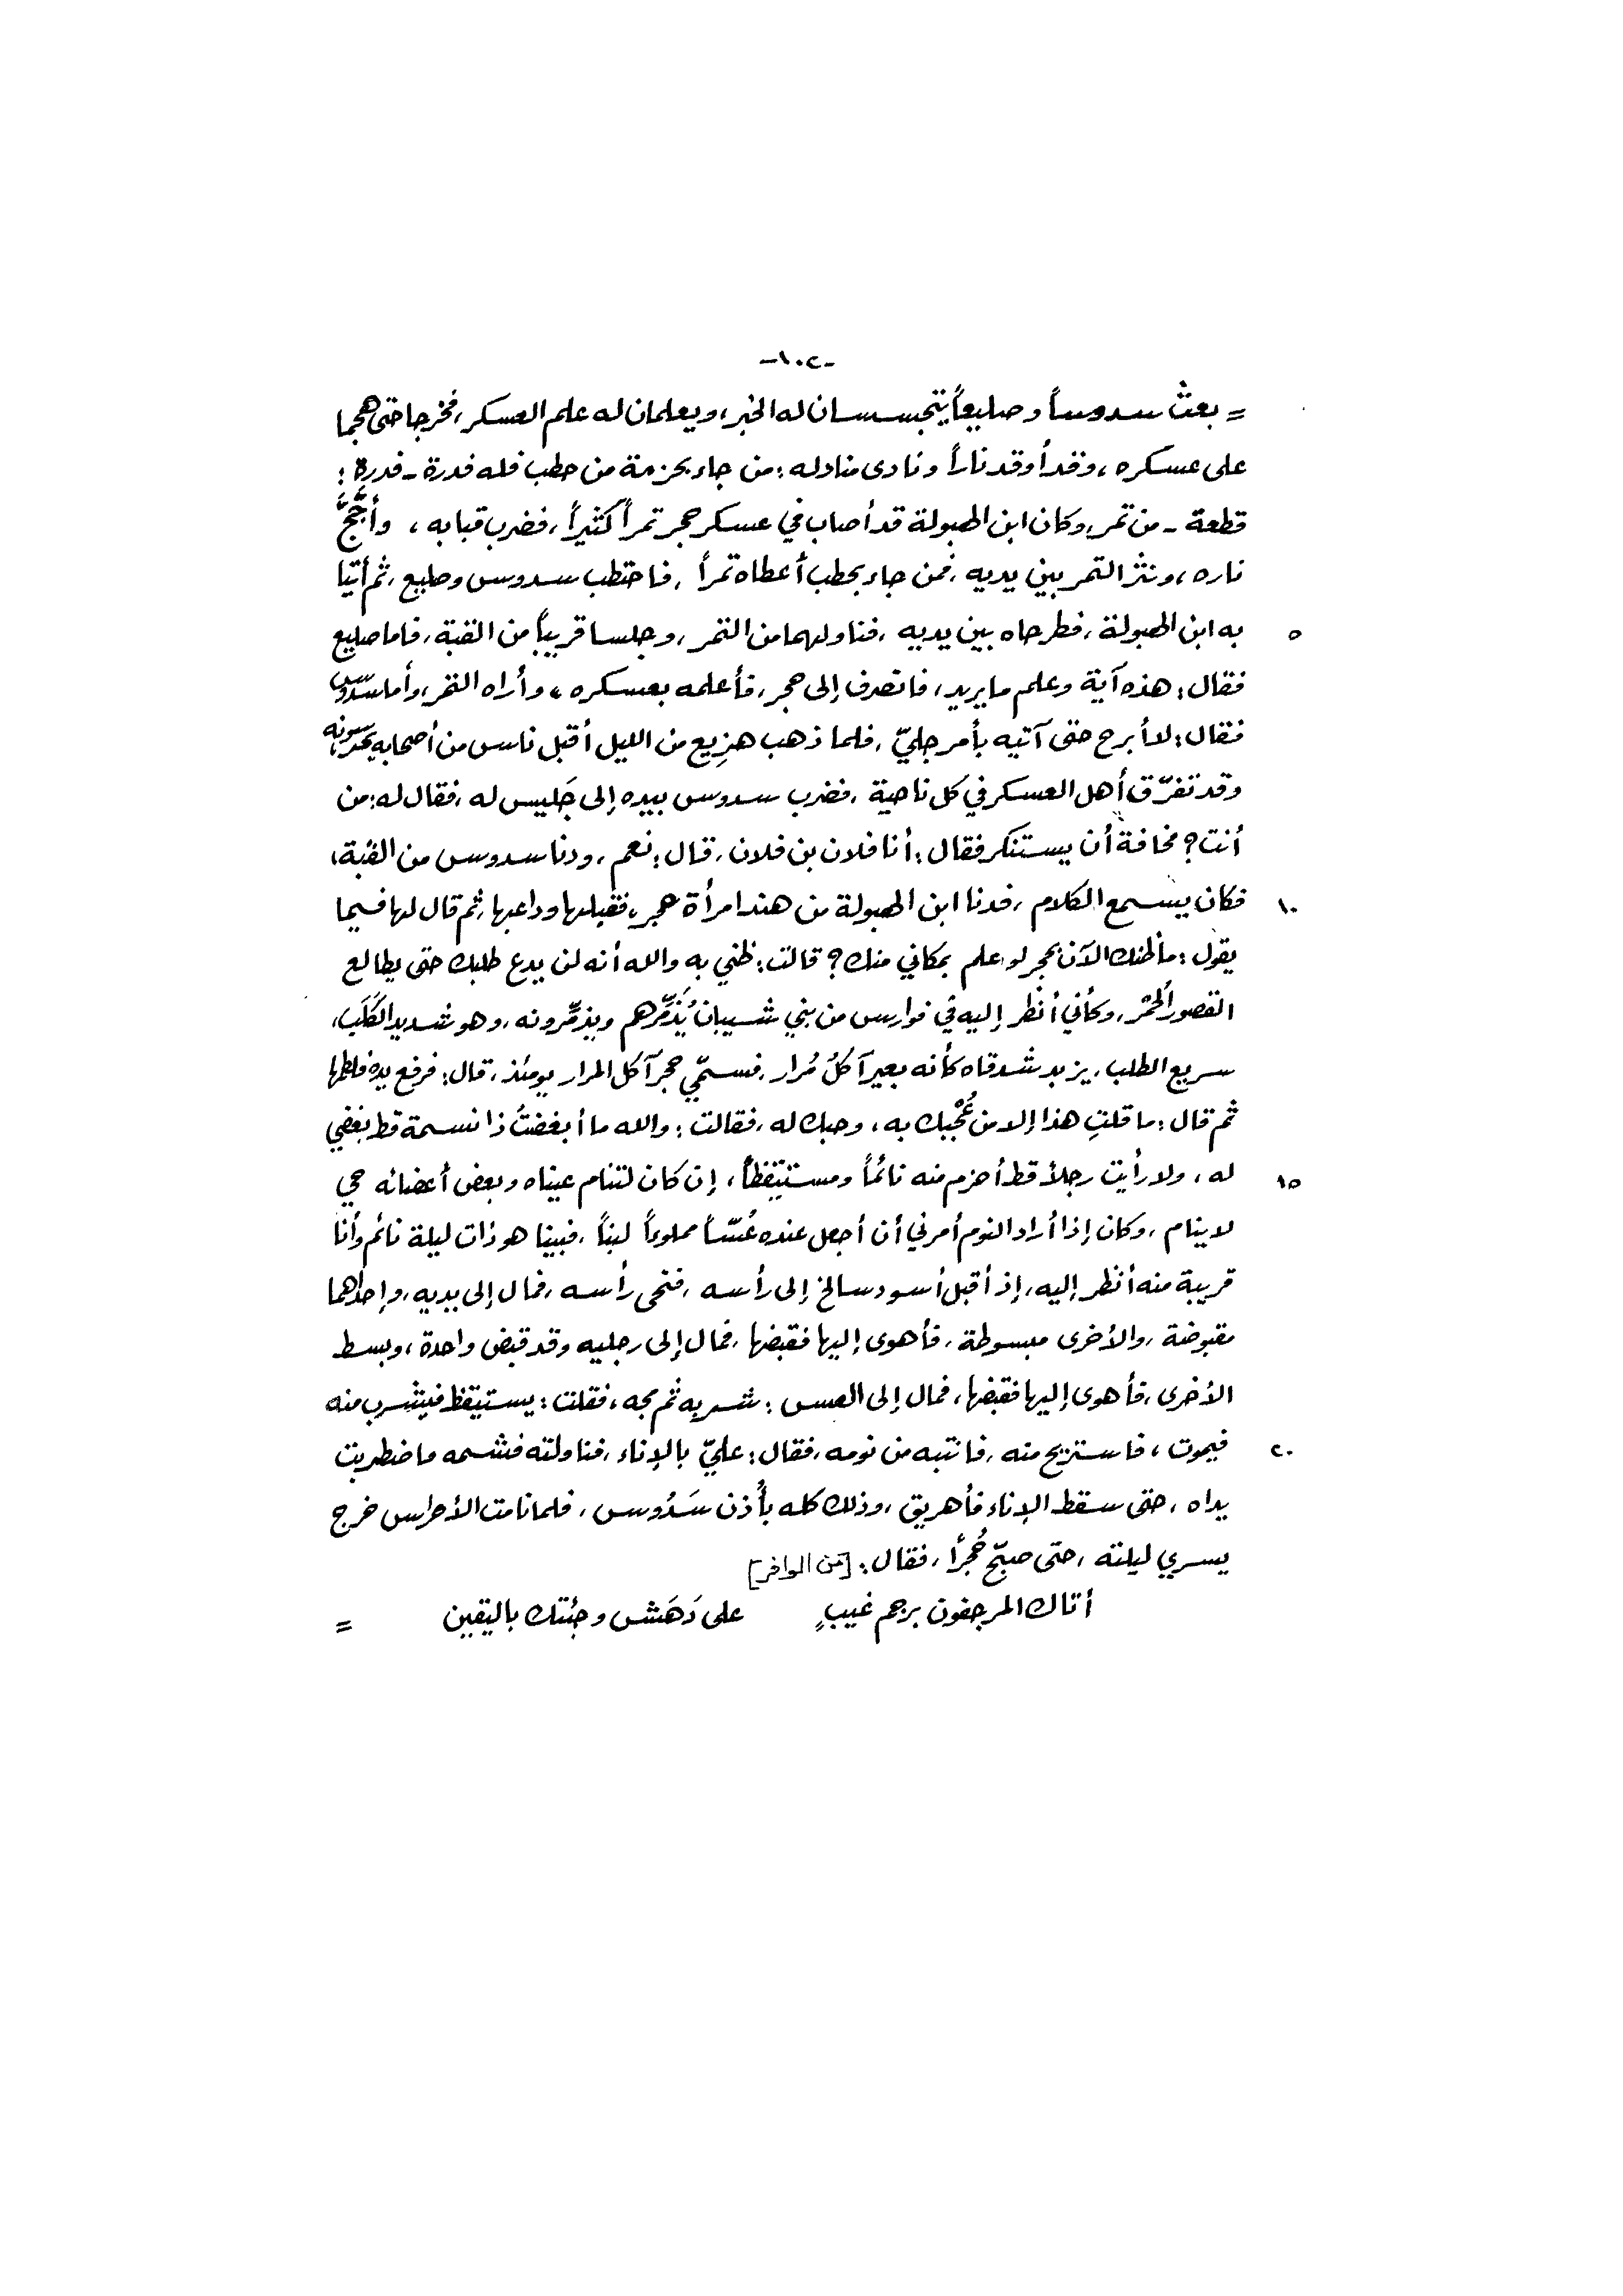 -١٠٢-
= بعث سدوساً وصليعاً يتجسسان له الخبر، ويعلمان له علم العسكر، فخرجا حتى هجما
على عسكره، وقد أوقد ناراً ونادى منادله: من جاء بحزمة من حطب فله فدرة - فدرة:
قطعة - من تمر، وكان ابن الهبولة قد أصاب في عسكر حجر تمراً كثيراً، فضرب قبابه، وأجَّجَ
ناره، ونثر التمر بين يديه، فمن جاء بحطب أعطاه تمراً، فاحتطب سدوس وصليع، ثم أتيا
٥ به ابن الهبولة، فطرحاه بين يديه، فناولهما من التمر، وجلسا قريباً من القبة، فاما صليع
فقال: هذه آية وعلم ما يريد، فانصرف إلى حجر، فأعلمه بعسكره، وأراه التمر، وأما سدوس
فقال: لا أبرح حتى آتيه بأمر جليّ، فلما ذهب هزِيع من الليل أقبل ناس من أصحابه يحرسونه،
وقد تفرّق أهل العسكر في كل ناحية، فضرب سدوس بيده إلى جَليس له، فقال له: من
أنت؟ مخافة أن يستنكر فقال: أنا فلان بن فلان، قال: نعم، ودنا سدوس من القبة،
١٠ فكان يسمع الكلام، فدنا ابن الهبولة من هند امرأة حجر، فقبلها وداعبها، ثم قال لها فيما
يقول: ما ظنك الآن بحجر لو علم بمكاني منك؟ قالت: ظني به والله أنه لن يدع طلبك حتى يطالع
القصور الحُمْر، وكأني أنظر إليه في فوارس من بني شيبان يُذَمِّرهم ويذمِّرونه، وهو شديد الكَلَب،
سريع الطلب، يزبد شدقاه كأنه بعير آكلُ مُرار، فسمّي حجر آكل المرار يومئذ، قال: فرفع يده فلطمها
ثم قال: ما قلتِ هذا إلا من عُجْبك به، وحبك له، فقالت: والله ما أبغضتُ ذا نسمة قط بغضي
١٥ له، ولا رأيت رجلاً قط أحزم منه نائماً ومستيقظاً، إن كان لتنام عيناه وبعض أعضائه حي
لا ينام، وكان إذا أراد النوم أمرني أن أجعل عنده عُسّاً مملوءاً لبناً، فبينا هو ذات ليلة نائم وأنا
قريبة منه أنظر إليه، إذ أقبل أسود سالخ إلى رأسه، فنحى رأسه، فمال إلى يديه، وإحداهما
مقبوضة، والأخرى مبسوطة، فأهوى إليها فقبضها، فمال إلى رجليه وقد قبض واحدة، وبسط
الأخرى، فأهوى إليها فقبضها، فمال إلى العس: شربه ثم مجه، فقلت: يستيقظ فيشرب منه
٢٠ فيموت، فاستريح منه، فانتبه من نومه، فقال: عليّ بالإناء، فناولته فشمه ما ضطربت
يداه، حتى سقط الإناء فأهريق، وذلك كله بأُذن سَدُوس، فلما نامت الأحراس خرج
يسري ليلته، حتى صبّح حُجراً، فقال: [من الوافر]
أتاك المرجفون برجم غيبٍ على دَهَش وجئتك باليقين =